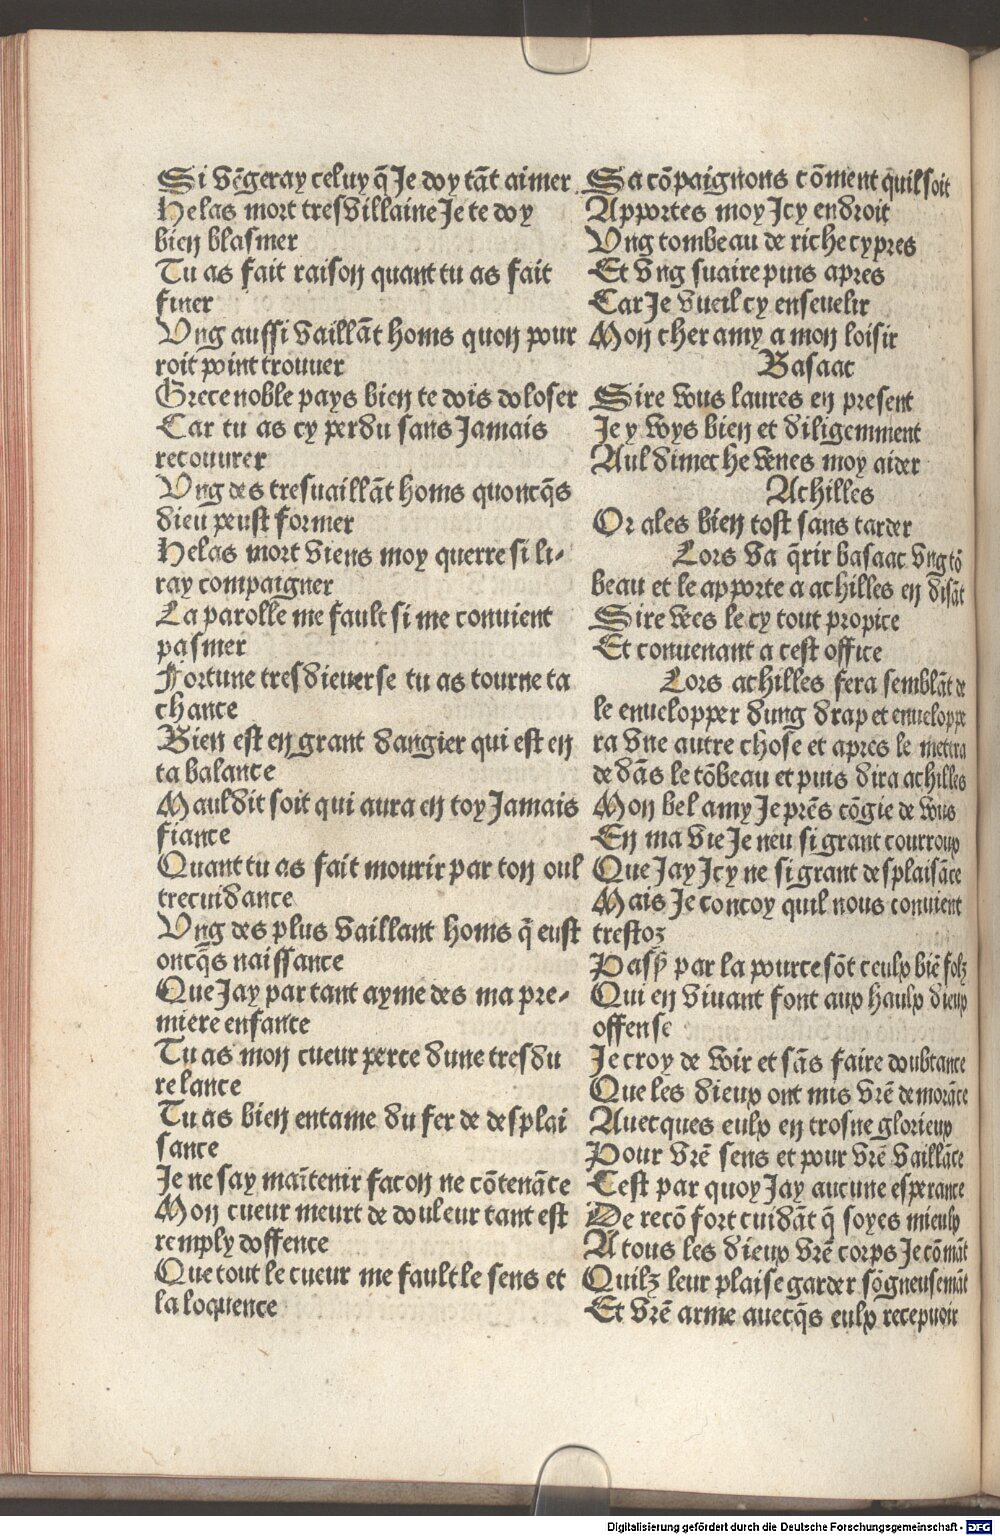 Si vẽgeray celuy q̃ Je doy tãt aimer
Helas mort tresvillaine Je te doy
bien blasmer
Tu as fait raison quant tu as fait
finer
Ung aussi vaillãt homs quon pour
roit point trouuer
Grece noble pays bien te dois doloser
Car tu as cy perdu sans Jamais
recouurer
Ung des tresuaillãt homs quoncq̃s
dieu peust former
Helas mort viens moy querre si li-
ray compaigner
La parolle me fault si me conuient
pasmer
Fortune tresdieuerse tu as tourne ta
chance
Bien est en grant dangier qui est en
ta balance
Mauldit soit qui aura en toy Jamais
fiance
Quant tu as fait mourir par ton oul
trecuidance
Ung des plus vaillant homs q̃ eust
oncq̃s naissance
Que Jay par tant ayme des ma pre-
miere enfance
Tu as mon cueur perce dune tres du
re lance
Tu as bien entame du fer de desplai
sance
Je ne say mañtenir facon ne cõtenãce
Mon cueur meurt de douleur tant est
remply doffence
Que tout le cueur me fault le sens et
la loquence
Sa cõpaignons cõment quil soit
Apportes moy Jcy endroit
Ung tombeau de riche cypres
Et vng suaire puis apres
Car Je vueil cy enseuelir
Mon cher amy a mon loisir
Basaac
Sire vous laures en present
Je y voys bien et diligemment
Auldimeche venes moy aider
Achilles
Or ales bien tost sans tarder
Lors va q̃rir basaac vng tõ
beau et le apporte a achilles en disãt
Sire vees le cy tout propice
Et conuenant a cest office
Lors achilles fera semblãt de
le enuelopper dung drap et enueloppe
ra vne autre chose et apres le mettra
dedãs le tõbeau et puis dira achilles
Mon bel amy Je prẽs cõgie de vous
En ma vie Je neu si grant courroux
Que Jay Jcy ne si grant desplaisãce
Mais Je concoy quil nous conuient
trestoz
Passer par la pource sõt ceulx biẽ folz
Qui en viuant font aux haulx dieux
offense
Je croy de voir et sãs faire doubtance
Que les dieux ont mis vrẽ demorãce
Auecques eulx en trosne glorieux
Pour vrẽ sens et pour vrẽ vaillãce
Cest par quoy Jay aucune esperance
De recõfort cuidãt q̃ soyes mieulx
A tous les dieux vrẽ corps Je cõmãt
Quilz leur plaise garder sõgneusemãt
Et vrẽ arme auecq̃s eulx recepuoir
Digitalisierung gefördert durch die Deutsche Forschungsgemeinschaft - DFG